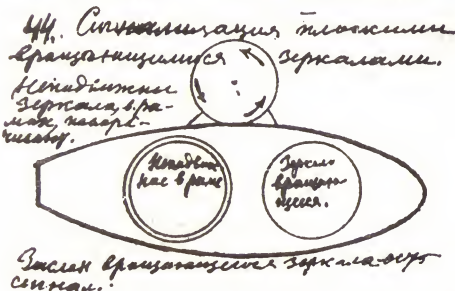 44. Сигнализация плоскими
вращающимися зеркалами.
Неподвижны
зеркала, в ра-
мах,
Неподвиж-
ное в раме
Зеркало
вращаю-
щееся.
Заслон вращающегося зеркала
сигнал.